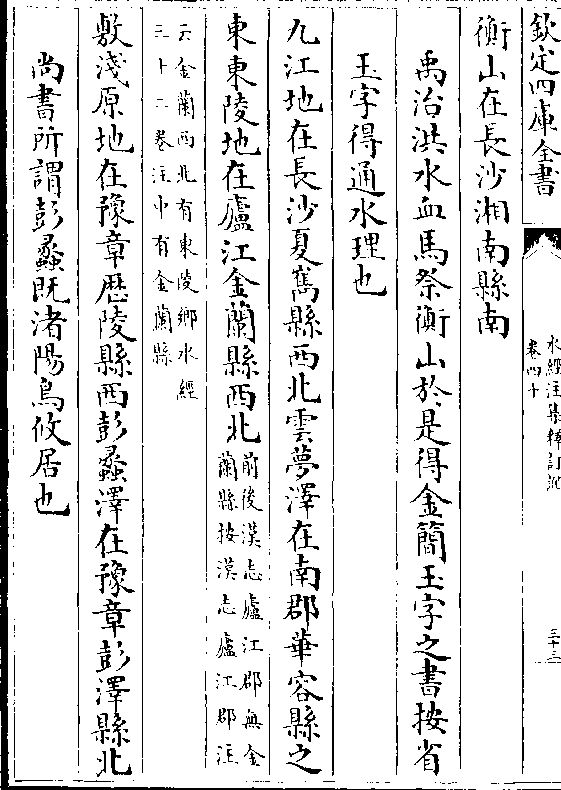 欽定四庫全書
水經注集釋訂訛
卷四十
三十三
衡山在長沙湘南縣南
禹治洪水血馬祭衡山於是得金簡玉字之書按省
玉字得通水理也
九江地在長沙夏雋縣西北雲夢澤在南郡華容縣之
東東陵地在廬江金蘭縣西北前後漢志廬江郡無金
蘭縣按漢志廬江郡注
云金蘭西北有東陵鄉水經
三十二卷注中有金蘭縣
敷淺原地在豫章歷陵縣西彭蠡澤在豫章彭澤縣北
尚書所謂彭蠡既渚陽鳥攸居也